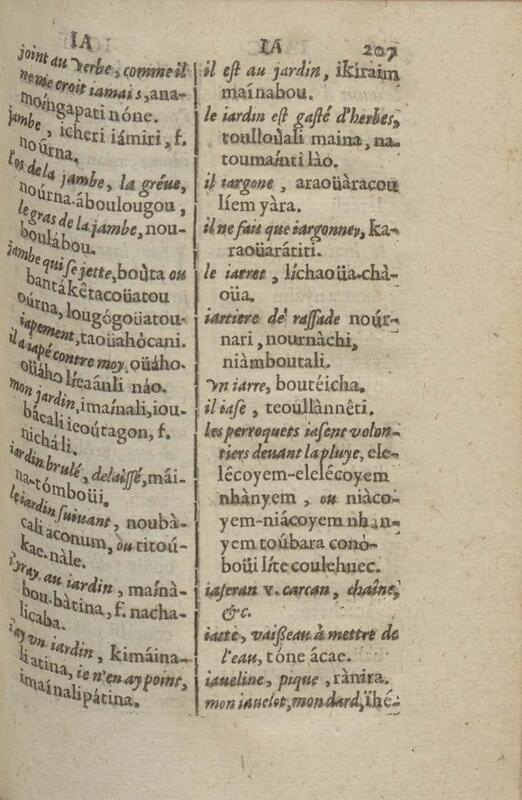 IA
joint au verbe, comme il
ne me croit iamais, ana-
moíngapati nóne.
jambe, icheri iámiri, f.
noúrna.
l'os de la jambe, la gréue,
noúrna-áboulougou,
le gras de la jambe, nou-
boulábou.
jambe qui se jette, boùta ou
bantákêtacoüatou
oúrna, lougógoüatou-
iapement, taoüahócani.
il a iapé contre moy, oüáho.
oüáho líeaánli náo.
mon jardin, imaínali, iou-
bácali icoútagon, f.
nicháli.
iardin brulé, delaissé, mái-
na-tómboüi.
le iardin suiuant, noubà-
cali àconum, ou titoú-
kae. nàle.
i'yray au iardin, maínà-
bou-bàtina, f. nacha-
licaba.
i'ay vn iardin, kimáina-
liatina, ie n'en ay point,
imaínalipátina.
IA 207
il est au jardin, ikiraim
maínabou.
le iardin est gasté d'herbes,
toullouàli maina, na-
toumaínti lào.
il iargone, araoüàracou
líem yàra.
il ne fait que iargonner, ka-
raoüarátiti.
le iarret, líchaoüa-chà-
oüa.
iartiere de rassade noúr-
nari, nournàchi,
niàmboutali.
Vn iarre, boutéicha.
il iase, teoullànnêti.
les perroquets iasent volon-
tiers deuant la pluye, ele-
lécoyem-elelécoyem
nhànyem, ou niàco-
yem-niácoyem nhan-
yem toúbara conò-
boüi líte coulehuec.
iaseran v. carcan, chaîne,
&c.
iatte, vaißeau à mettre de
l'eau, tóne ácae.
iaueline, pique, rànira.
mon iauelot, mon dard, ïhé-